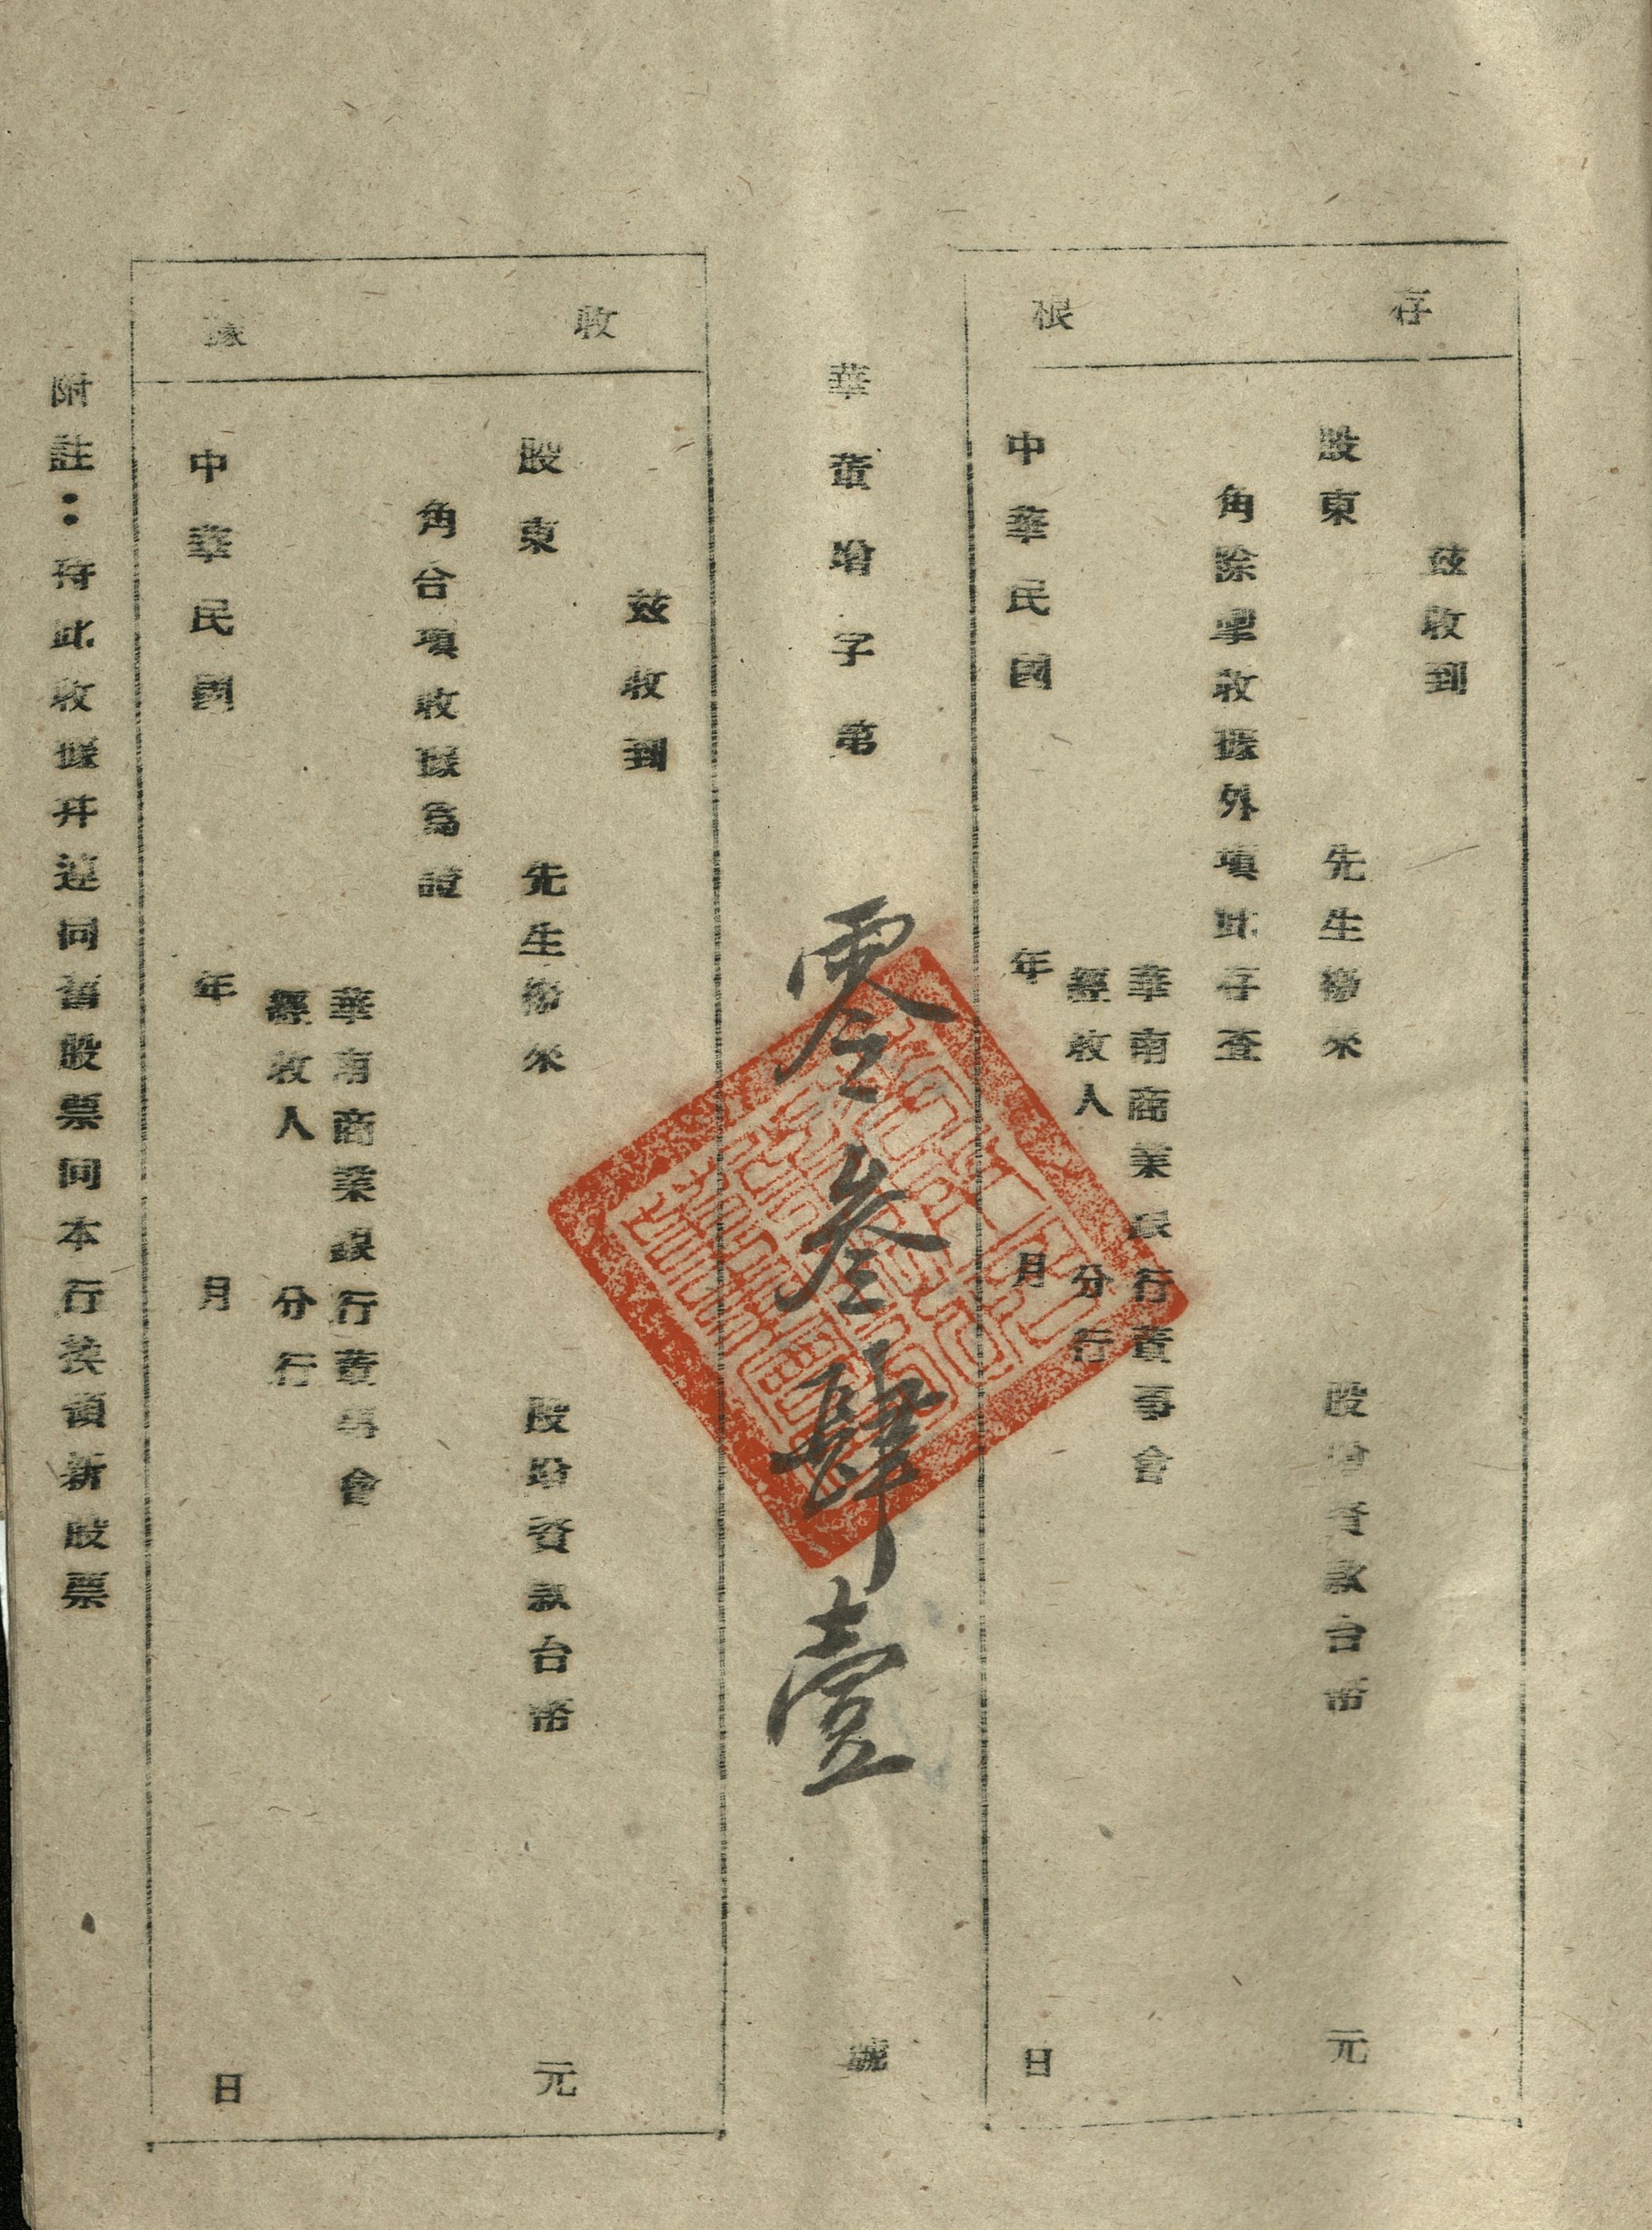 存根
茲收到
股東 先生繳來 股份資款台幣 元
角除掣收據外填此存查
華南商業銀行董事會
經收人 分行
中華民國 年 月 日
華董增字第 零叁肆壹 號
收據
茲收到
股東 先生繳來 股份資款台幣 元
角合填收據為證
華南商業銀行董事會
經收人 分行
中華民國 年 月 日
附註：持此收據并連同舊股票向本行換領新股票